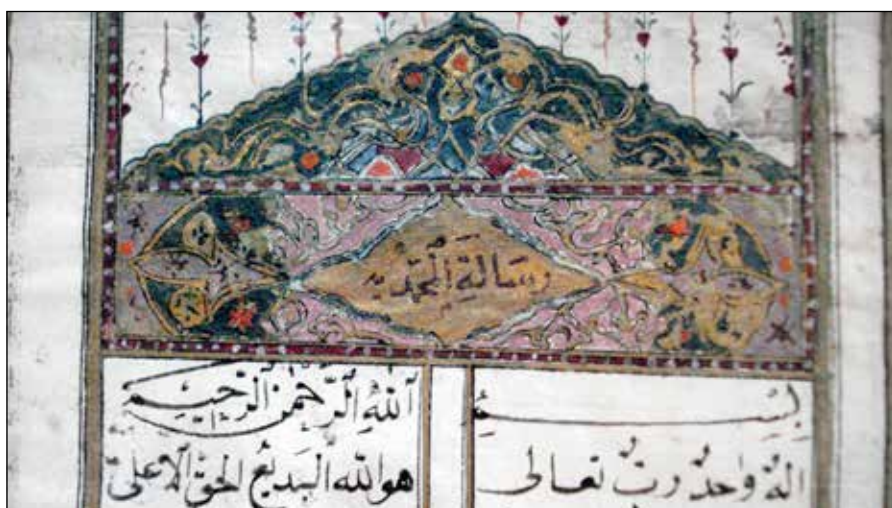 رسالة المحمديه
بِسْمِ اللهِ الرَّحْمٰنِ الرَّحِيمِ
الهٌ واحدٌ ربٌّ تعالى هو الله البديعُ الحقّ الاعلى